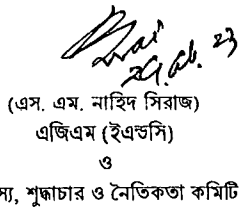 (এস. এম. নাহিদ সিরাজ)
এজিএম (ইএন্ডসি)
ও
স্য, শুদ্ধাচার ও নৈতিকতা কমিটি